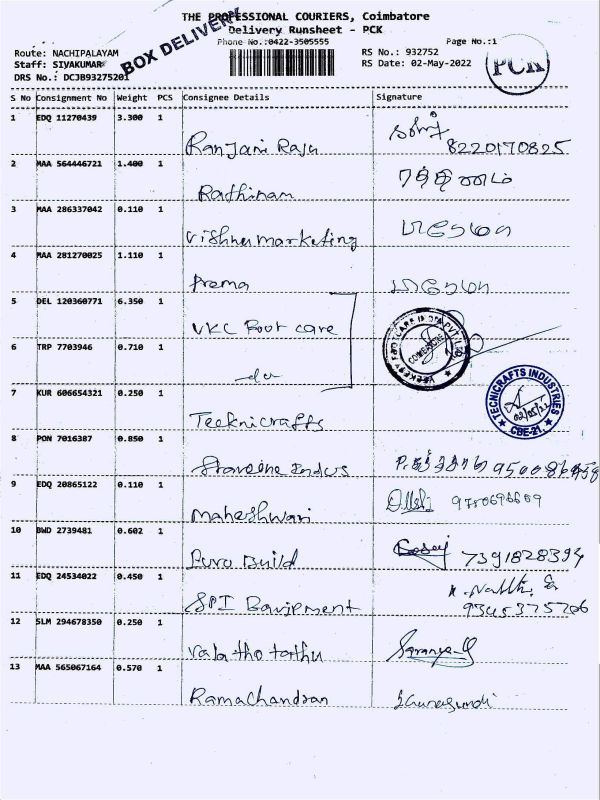 THE PROFESSIONAL COURIERS, Coimbatore
Delivery Runsheet - PCK
Phone No.:0422-3505555 Page No.:1
BOX DELIVERY
Route: NACHIPALAYAM RS No.: 932752
Staff: SIVAKUMAR RS Date: 02-May-2022
DRS No.: DCJB93275201
PCK
S No Consignment No Weight PCS Consignee Details Signature
1 EDQ 11270439 3.300 1
Ranjani Raju 8220170825
2 MAA 564446721 1.400 1
Rathinam ரத்தினம்
3 MAA 286337042 0.110 1
Vishnu marketing
4 MAA 281270025 1.110 1
Prema
5 DEL 120360771 6.350 1
VKC Foot care
6 TRP 7703946 0.710 1
COIMBATORE
7 KUR 606654321 0.250 1
Tecknicrafts
TECNICRAFTS INDUSTRIES
02/05/22
CBE-21.
8 PON 7016387 0.850 1
9 EDQ 20865122 0.110 1
Maheshwari
10 BWD 2739481 0.602 1
Puro Build 7391828394
11 EDQ 24534022 0.450 1
SPI 9345375206
12 SLM 294678350 0.250 1
Saranya
13 MAA 565067164 0.570 1
Ramachandran